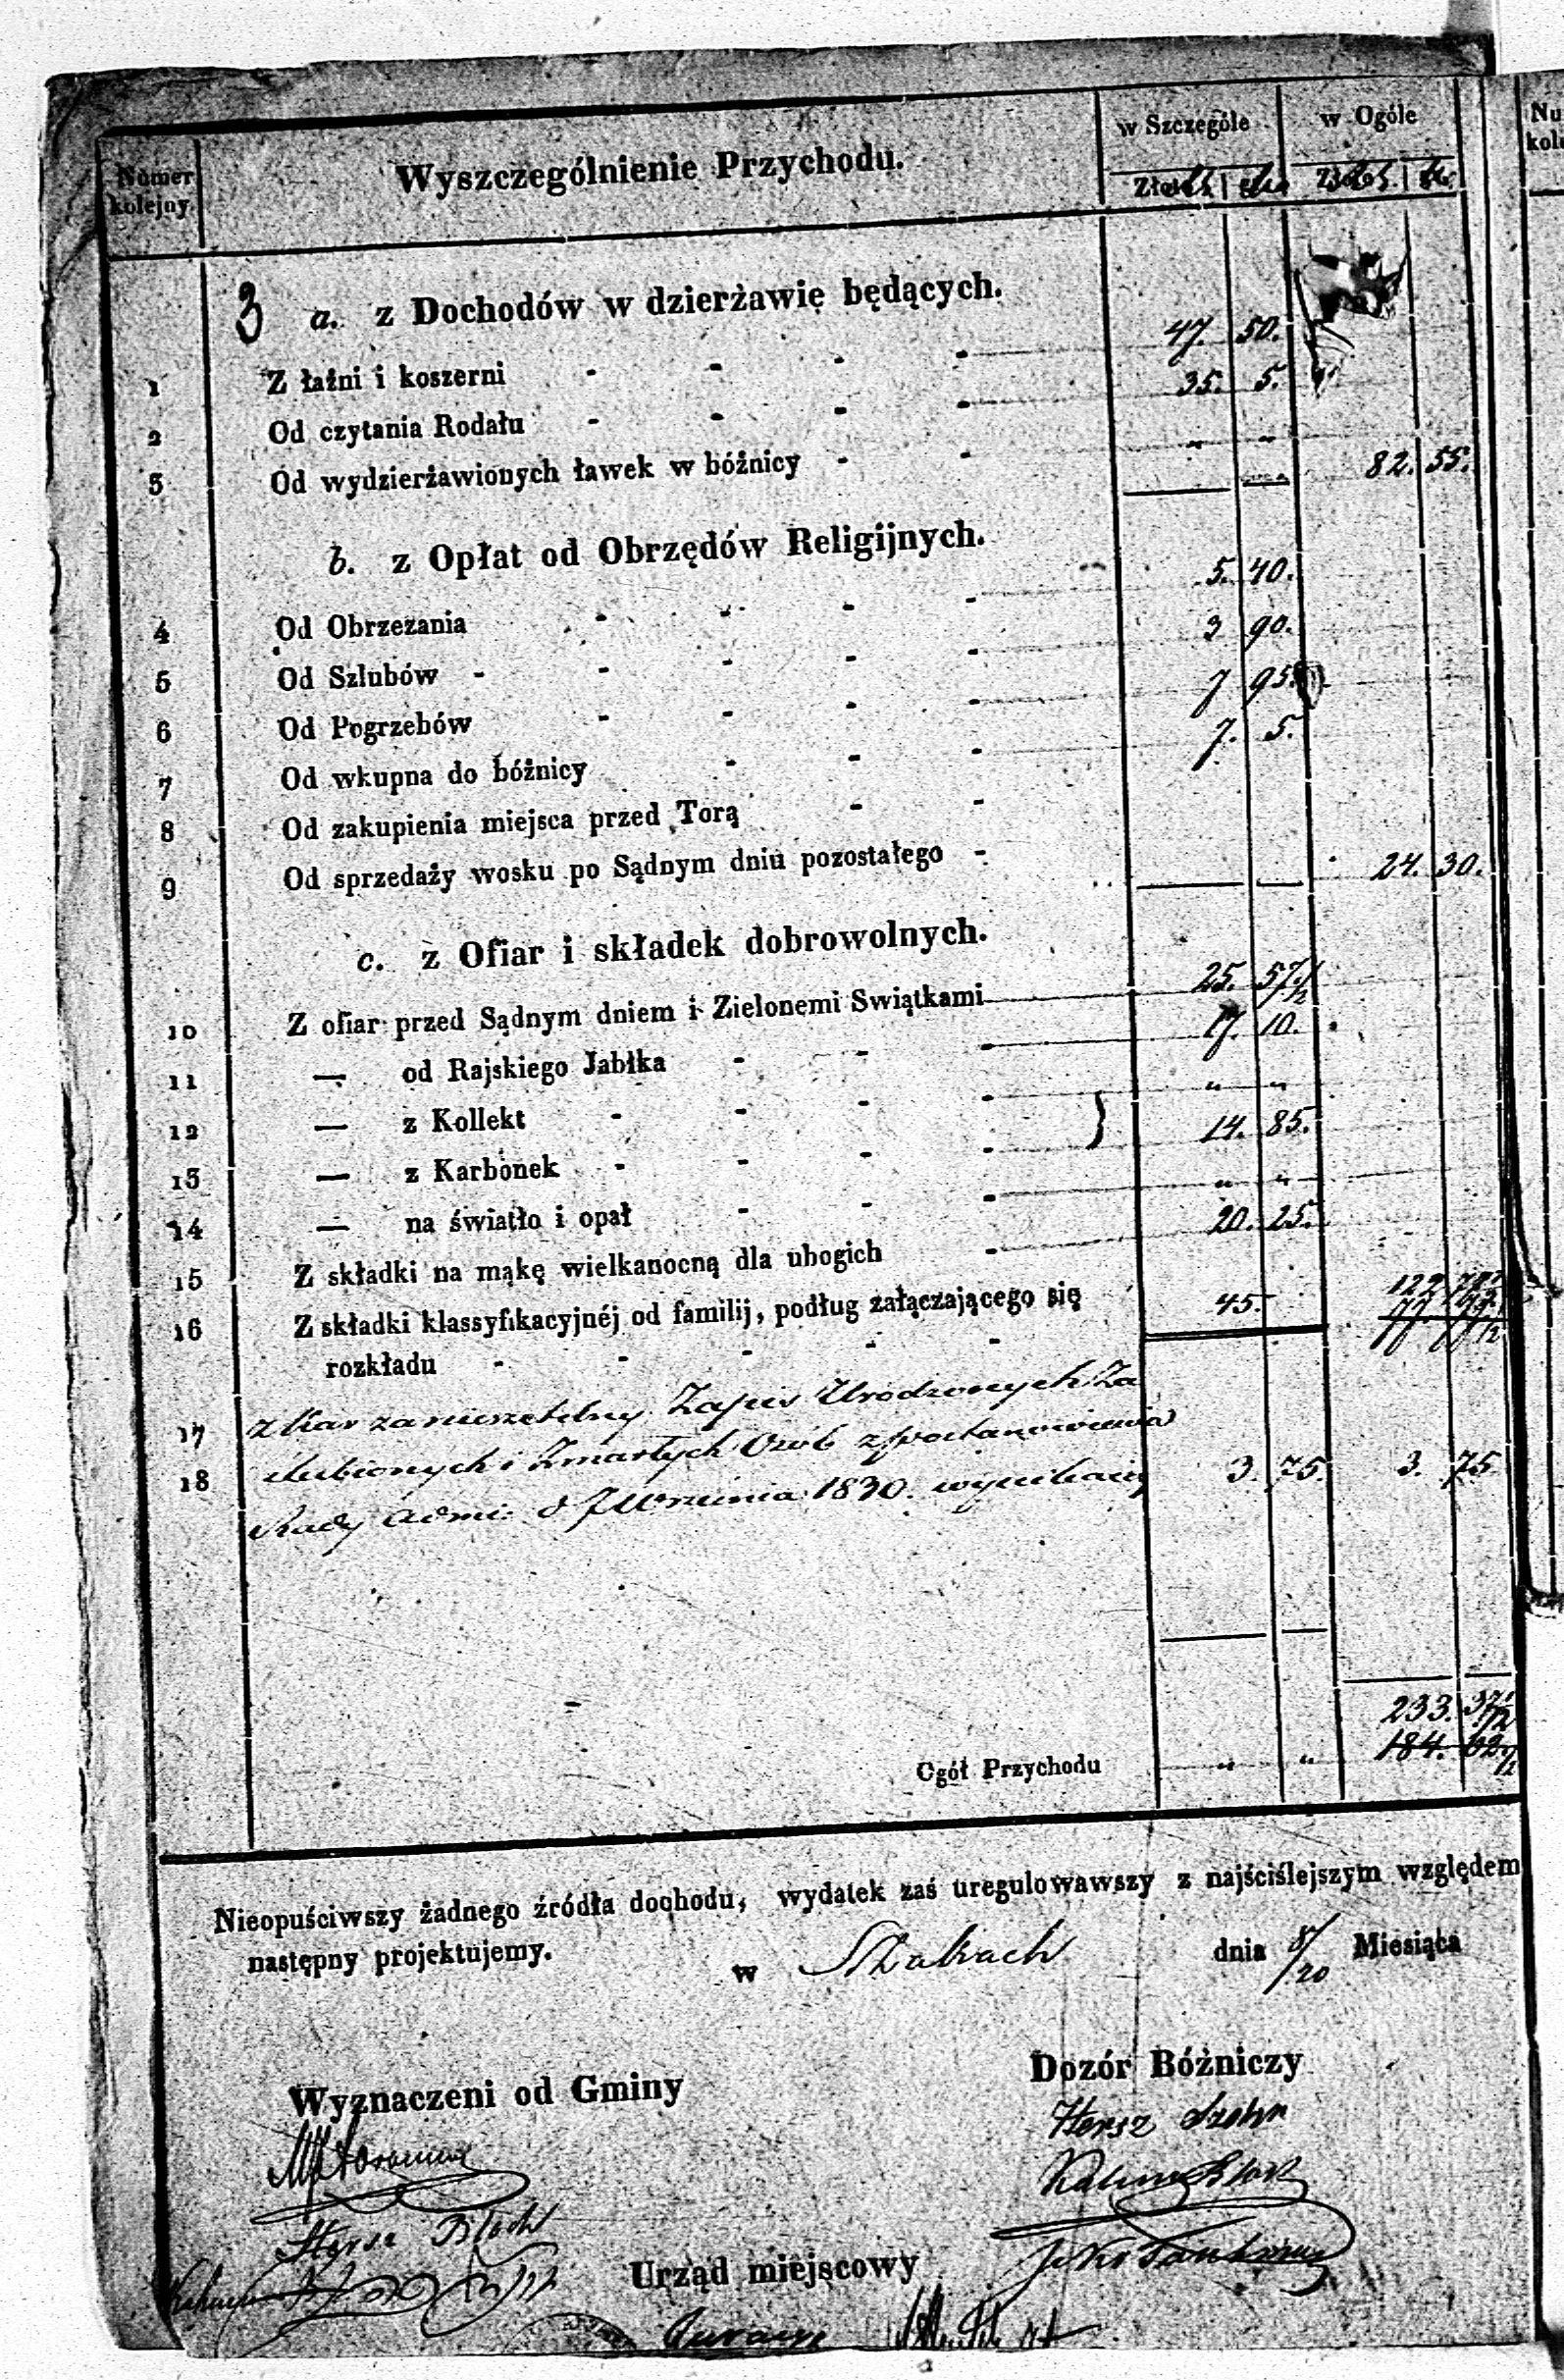 Numer kolejny. Wyszczególnienie Przychodu. w Szczególe w Ogóle
3 a. z Dochodów w dzierżawie będących.
1 Z łaźni i koszerni - - - - 47. 50.
2 Od czytania Rodału - - - - 35. 5.
3 Od wydzierżawionych ławek w bóżnicy - - „ „ 82. 55.
b. z Opłat od Obrzędów Religijnych.
4 Od Obrzezania - - - - 5. 40.
5 Od Szlubów - - - - - 3 90.
6 Od Pogrzebów - - - - 7 95.
7 Od wkupna do bóżnicy - - - 7. 5.
8 Od zakupienia miejsca przed Torą - -
9 Od sprzedaży wosku po Sądnym dniu pozostałego - 24. 30.
c. z Ofiar i składek dobrowolnych.
10 Z ofiar przed Sądnym dniem i Zielonemi Swiątkami 25. 57 1/2
11 — od Rajskiego Jabłka - - - 17. 10.
12 — z Kollekt - - - - „ „
13 — z Karbonek - - - - } 14. 85.
14 — na światło i opał - - - „ „
15 Z składki na mąkę wielkanocną dla ubogich - 20. 25.
16 Z składki klassyfikacyjnéj od familij, podług załączającego się 45. 122
rozkładu - - - - - 77.
17 z kar za nierzetelny Zapis Urodzonych Za
18 slubionych i Zmarłych Osób z postanowienia 3. 75. 3. 75
Rady Admi: d 7 Wrzesnia 1830.
233. 37 1/2
Ogół Przychodu „ „ 184. 62 1/2
Nieopuściwszy żadnego źródła dochodu, wydatek zaś uregulowawszy z najściślejszym względem
następny projektujemy.
w dnia 8/20 Miesiąca
Wyznaczeni od Gminy Dozór Bóżniczy
Hersz
Hersz Bloch
Urząd miejscowy